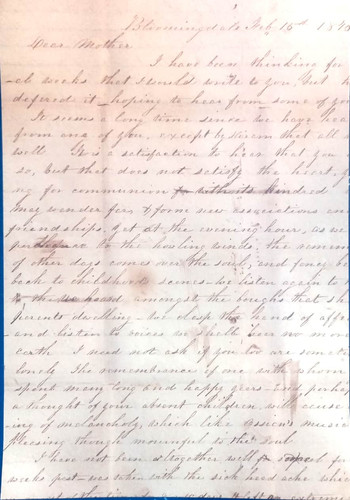 Bloomingdale Feb 15th 18
Dear Mother
I have been thinking for
weeks that I would write to you, but h
defered it - hoping to hear from some of you
It seems a long time since we have hea
from one of you, except by that all
well It is a satisfaction to hear that you
so, but that does not satisfy the heart,
ng for communion with its kindred
may wander far & form new associations an
friendships, yet at the evening hour, as we
to the howling winds, the remem
of other days comes over the soul, and fancy be
back to childhoods scenes - we listen again to
the amongst the boughs that sh
parents dwelling - we clasp the hand of affe
and listen to voices we shall no mor
earth I need not ask if you too are somet
lonely The remembrance of one with whom
spent many long and happy years - and perhap
a thought of your absent children, will cause
ing of melancholy which like music
pleasing though mournful to the Soul
I have not been altogether well for
weeks past - was taken with the sick head ache which